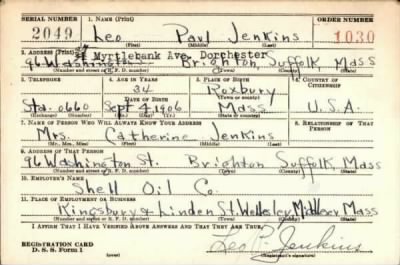 SERIAL NUMBER 1. NAME (Print) ORDER NUMBER
2049 Leo Paul Jenkins 1030
(First) (Middle) (Last)
2. ADDRESS (Print) Myrtlebank Ave. Dorchester
96 Washington Brighton, Suffolk, Mass
(Number and street or R. F. D. number) (Town) (County) (State)
3. TELEPHONE 4. AGE IN YEARS 5. PLACE OF BIRTH 6. COUNTRY OF CITIZENSHIP
34 Roxbury
DATE OF BIRTH (Town or county)
Sta. 0660 Sept 4 1906 Mass U.S.A.
(Exchange) (Number) (Mo.) (Day) (Yr.) (State or country)
7. NAME OF PERSON WHO WILL ALWAYS KNOW YOUR ADDRESS 8. RELATIONSHIP OF THAT PERSON
Mrs. Catherine Jenkins
(Mr., Mrs., Miss) (First) (Middle) (Last)
9. ADDRESS OF THAT PERSON
96 Washington St. Brighton Suffolk, Mass
(Number and street or R. F. D. number) (Town) (County) (State)
10. EMPLOYER'S NAME
Shell Oil Co.
11. PLACE OF EMPLOYMENT OR BUSINESS
Kingsbury & Linden St. Wellesley Middlesex Mass
(Number and street or R. F. D. number) (Town) (County) (State)
I AFFIRM THAT I HAVE VERIFIED ABOVE ANSWERS AND THAT THEY ARE TRUE.
REGISTRATION CARD
D. S. S. Form 1 Leo P. Jenkins
(Registrant's signature)